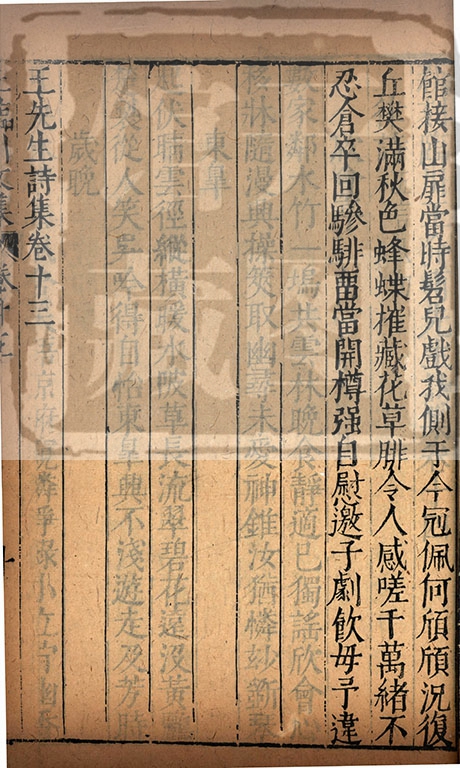 館接山扉當時髫兒戲我側于今冠佩何頎頎況復
丘樊滿秋色蜂蝶摧藏花草腓令人感嗟千萬緒不
忍倉卒回驂騑畱當開樽强自慰邀子劇飲毋予違
數家鄰水竹一塢共雲林晚食靜適已獨謠欣會心
牀隨漫興操筴取幽尋未愛神錐汝猶憐妙斲琴
東皐
起伏晴雲徑縱橫暖水陂草長流翠碧花遠沒黃鸝
從人笑吟得自怡東皐興不淺遊走及芳時
歲晚
王先生詩集卷十三